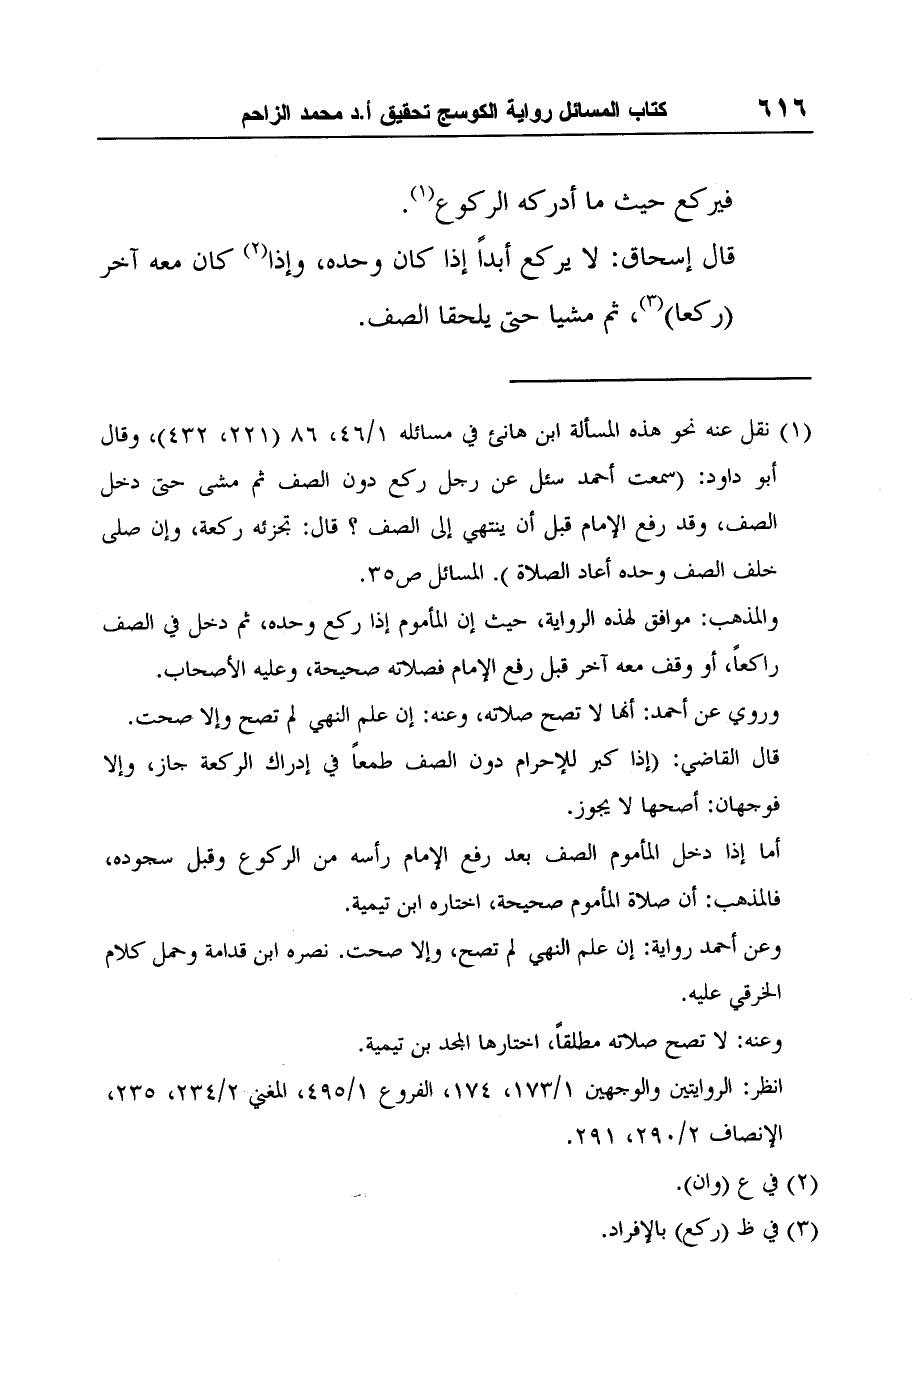 ٦١٦ كتاب المسائل رواية الكوسج تحقيق أ.د محمد الزاحم
فيركع حيث ما أدركه الركوع(١).
قال إسحاق: لا يركع أبداً إذا كان وحده، وإذا(٢) كان معه آخر
(ركعا)(٣)، ثم مشيا حتى يلحقا الصف.
(١) نقل عنه نحو هذه المسألة ابن هانئ في مسائله ٤٦/١، ٨٦ (٢٢١، ٤٣٢)، وقال
أبو داود: (سمعت أحمد سئل عن رجل ركع دون الصف ثم مشى حتى دخل
الصف، وقد رفع الإمام قبل أن ينتهي إلى الصف ؟ قال: تجزئه ركعة، وإن صلى
خلف الصف وحده أعاد الصلاة ). المسائل ص٣٥.
والمذهب: موافق لهذه الرواية، حيث إن المأموم إذا ركع وحده، ثم دخل في الصف
راكعاً، أو وقف معه آخر قبل رفع الإمام فصلاته صحيحة، وعليه الأصحاب.
وروي عن أحمد: أنها لا تصح صلاته، وعنه: إن علم النهي لم تصح وإلا صحت.
قال القاضي: (إذا كبر للإحرام دون الصف طمعاً في إدراك الركعة جاز، وإلا
فوجهان: أصحها لا يجوز.
أما إذا دخل المأموم الصف بعد رفع الإمام رأسه من الركوع وقبل سجوده،
فالمذهب: أن صلاة المأموم صحيحة، اختاره ابن تيمية.
وعن أحمد رواية: إن علم النهي لم تصح، وإلا صحت. نصره ابن قدامة وحمل كلام
الخرقي عليه.
وعنه: لا تصح صلاته مطلقاً، اختارها المجد بن تيمية.
انظر: الروايتين والوجهين ١٧٣/١، ١٧٤، الفروع ٤٩٥/١، المغني ٢٣٤/٢، ٢٣٥،
الإنصاف ٢٩٠/٢، ٢٩١.
(٢) في ع (وان).
(٣) في ظ (ركع) بالإفراد.